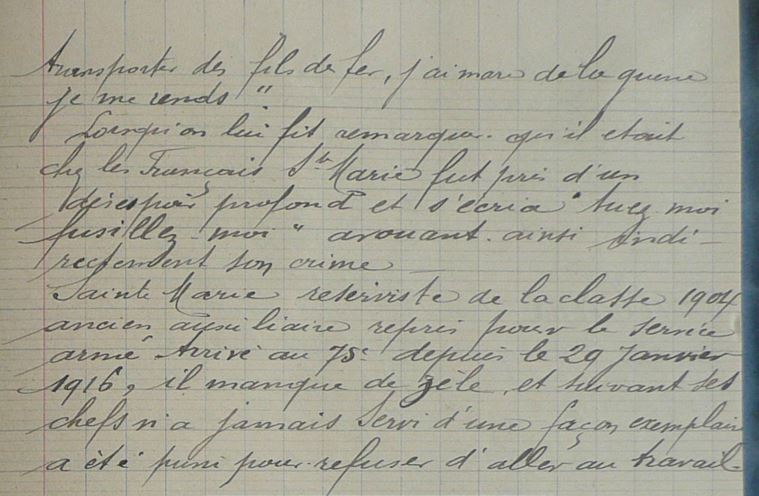 transporter des fils de fer, j'ai marre de la guerre
je me rends"
Lorsqu'on lui fit remarquer qu'il etait
chez les Français Ste Marie fut pris d'un
désespoir profond et s'écria "tuez moi
fusillez-moi" avouant ainsi indi-
rectement son crime
Sainte Marie reserviste de la classe 1904
ancien auxiliaire repris pour le service
armé Arrivé au 75e depuis le 29 Janvier
1916, il manque de zèle, et suivant ses
chefs n'a jamais servi d'une façon exemplaire
a été puni pour refuser d'aller au travail.